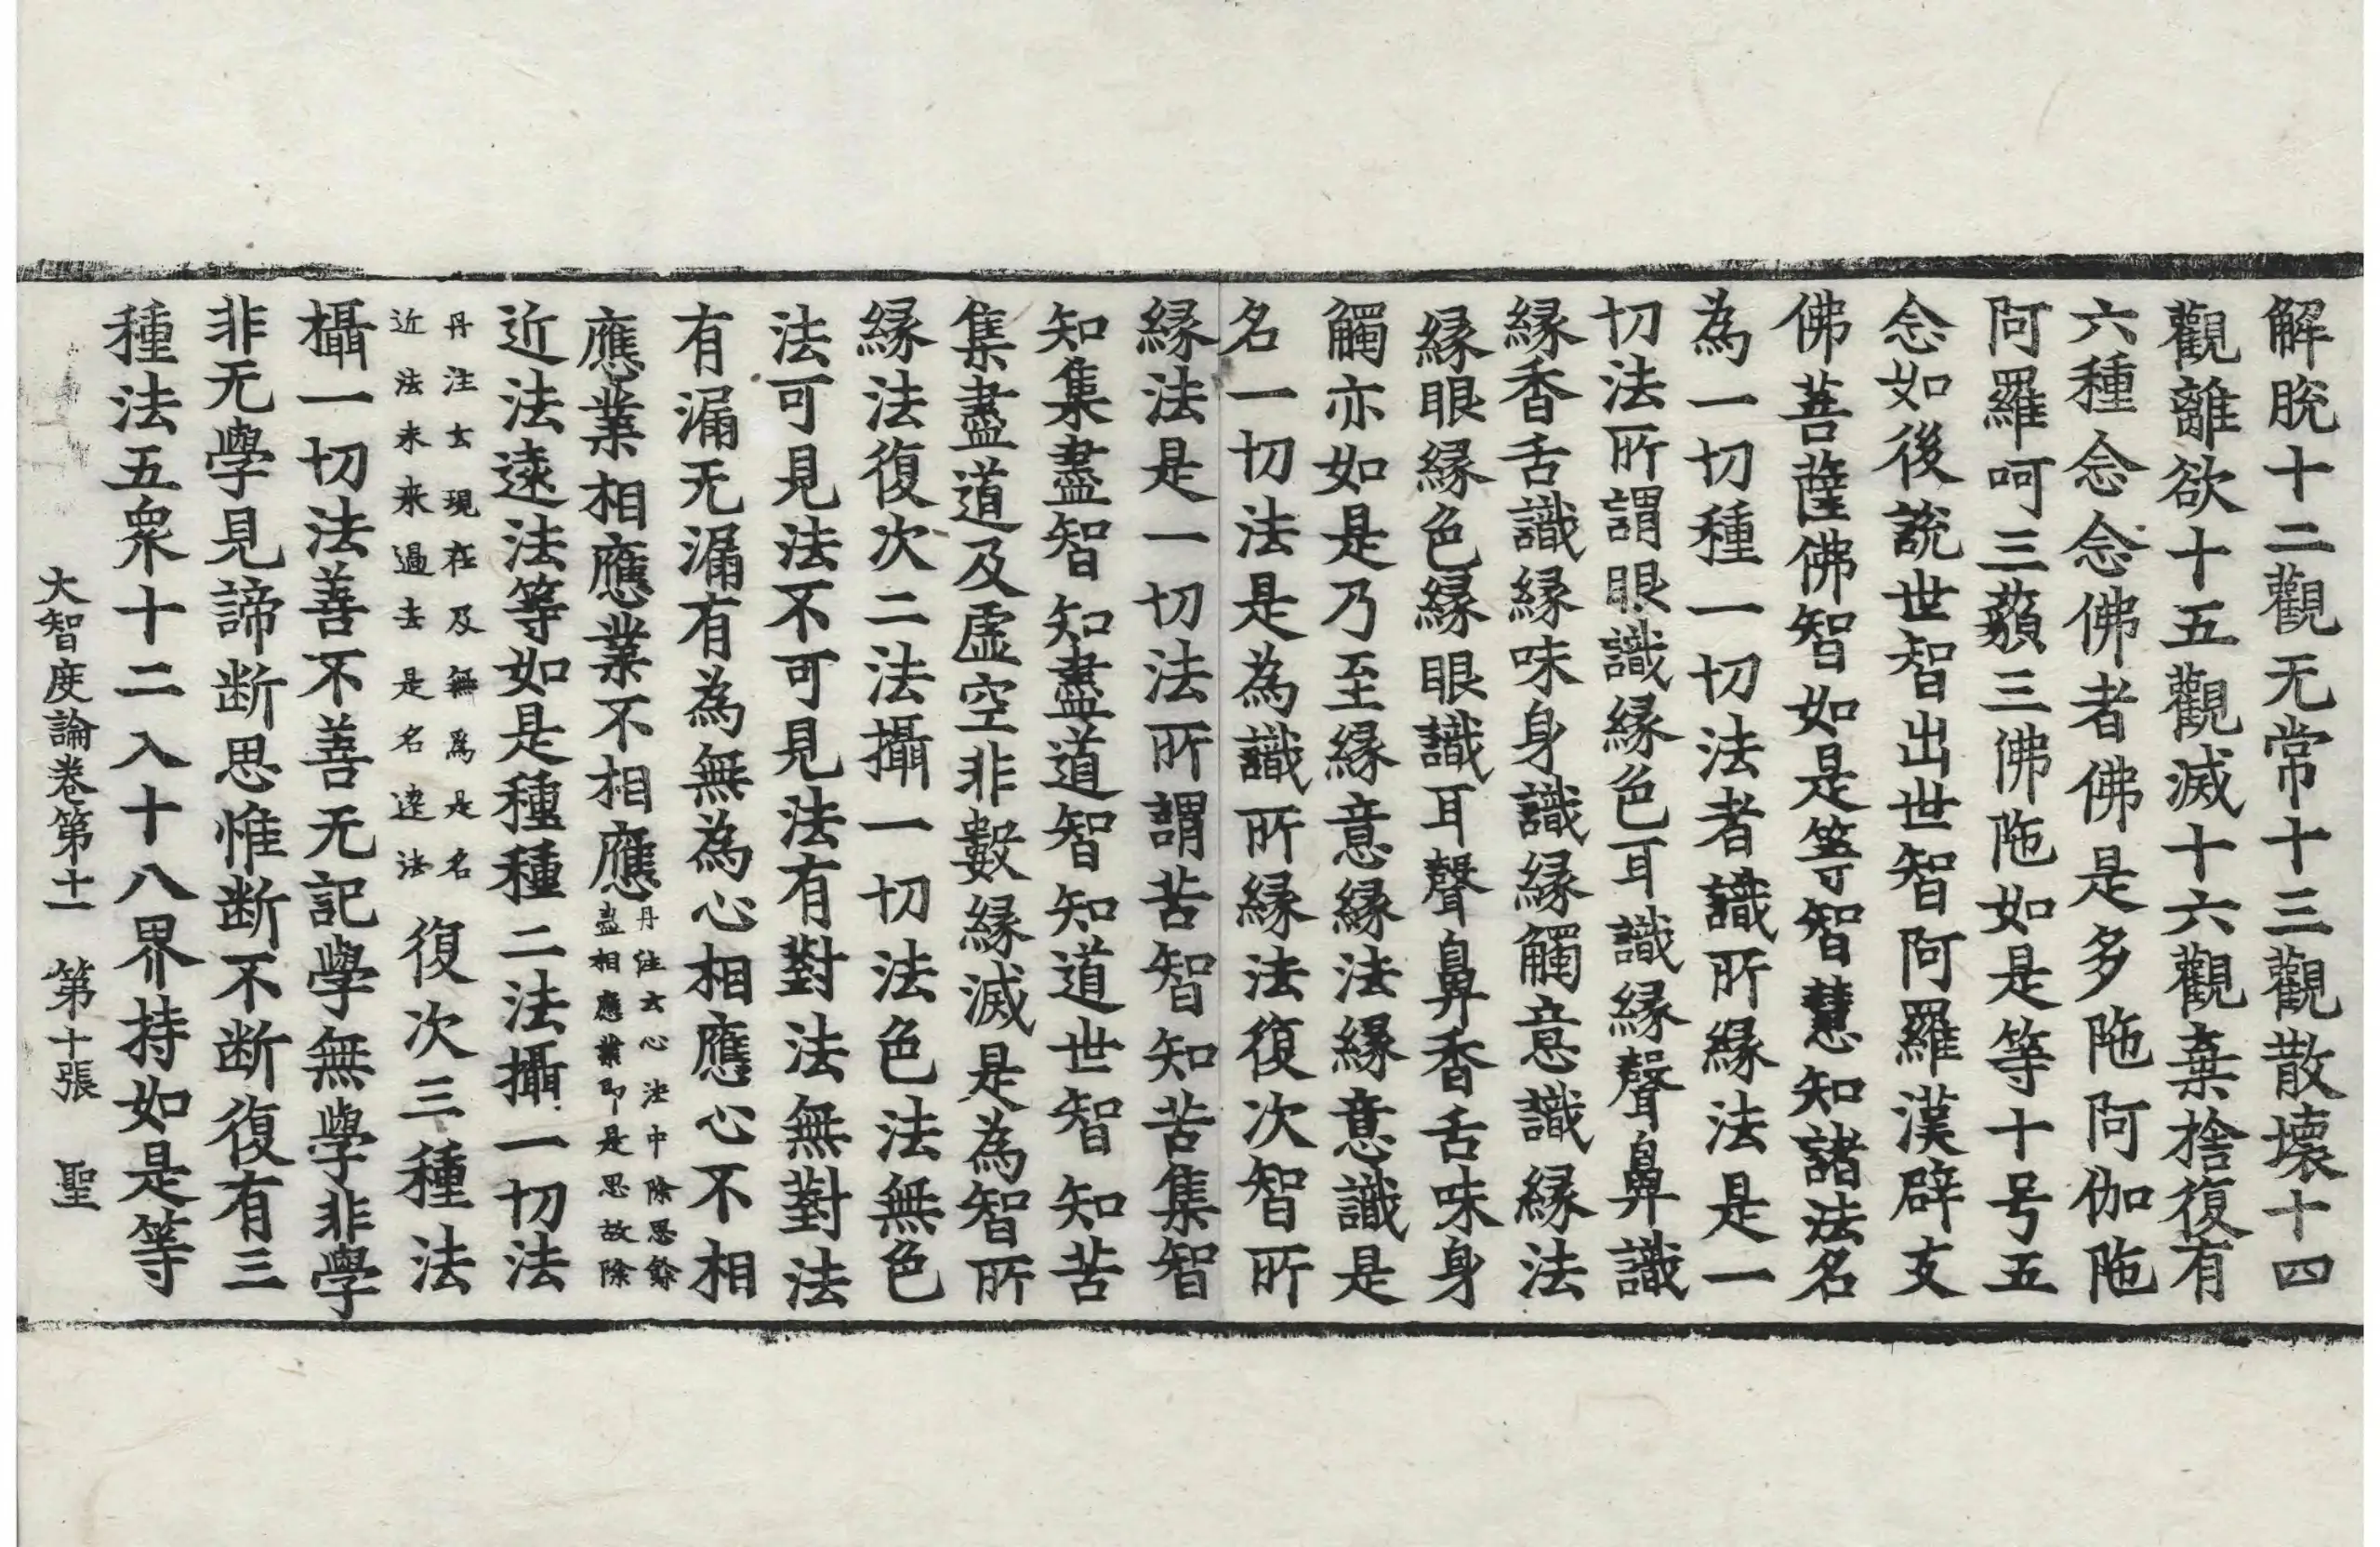 解脫十二觀无常十三觀散壞十四
觀離欲十五觀滅十六觀棄捨復有
六種念念佛者佛是多陁阿伽陁
阿羅呵三藐三佛陁如是等十号五
念如後說世智出世智阿羅漢辟支
佛菩薩佛智如是等智慧知諸法名
為一切種一切法者識所緣法是一
切法所謂眼識緣色耳識緣聲鼻識
緣香舌識緣味身識緣觸意識緣法
緣眼緣色緣眼識耳聲鼻香舌味身
觸亦如是乃至緣意緣法緣意識是
名一切法是為識所緣法復次智所
緣法是一切法所謂苦智知苦集智
知集盡智知盡道智知道世智知苦
集盡道及虛空非數緣滅是為智所
緣法復次二法攝一切法色法無色
法可見法不可見法有對法無對法
有漏无漏有為無為心相應心不相
應業相應業不相應丹注云心法中除思餘盡相應業即是思故除
近法遠法等如是種種二法攝一切法
丹注云現在及無為是名近法未來過去是名遠法復次三種法
攝一切法善不善无記學無學非學
非无學見諦断思惟断不断復有三
種法五衆十二入十八界持如是等
大智度論卷第十一 第十張 聖